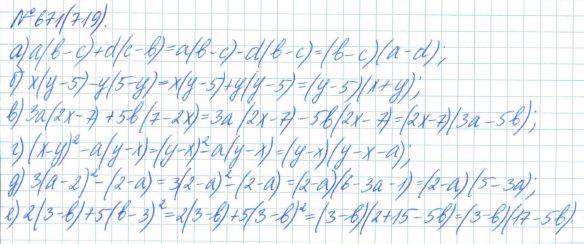 №671(719).
а) a(b-c)+d(c-b)=a(b-c)-d(b-c)=(b-c)(a-d);
б) x(y-5)-y(5-y)=x(y-5)+y(y-5)=(y-5)(x+y);
в) 3a(2x-7)+5b(7-2x)=3a(2x-7)-5b(2x-7)=(2x-7)(3a-5b);
г) (x-y)²-a(y-x)=(y-x)²-a(y-x)=(y-x)(y-x-a);
д) 3(a-2)²-(2-a)=3(2-a)²-(2-a)=(2-a)(6-3a-1)=(2-a)(5-3a);
е) 2(3-b)+5(b-3)²=2(3-b)+5(3-b)²=(3-b)(2+15-5b)=(3-b)(17-5b).